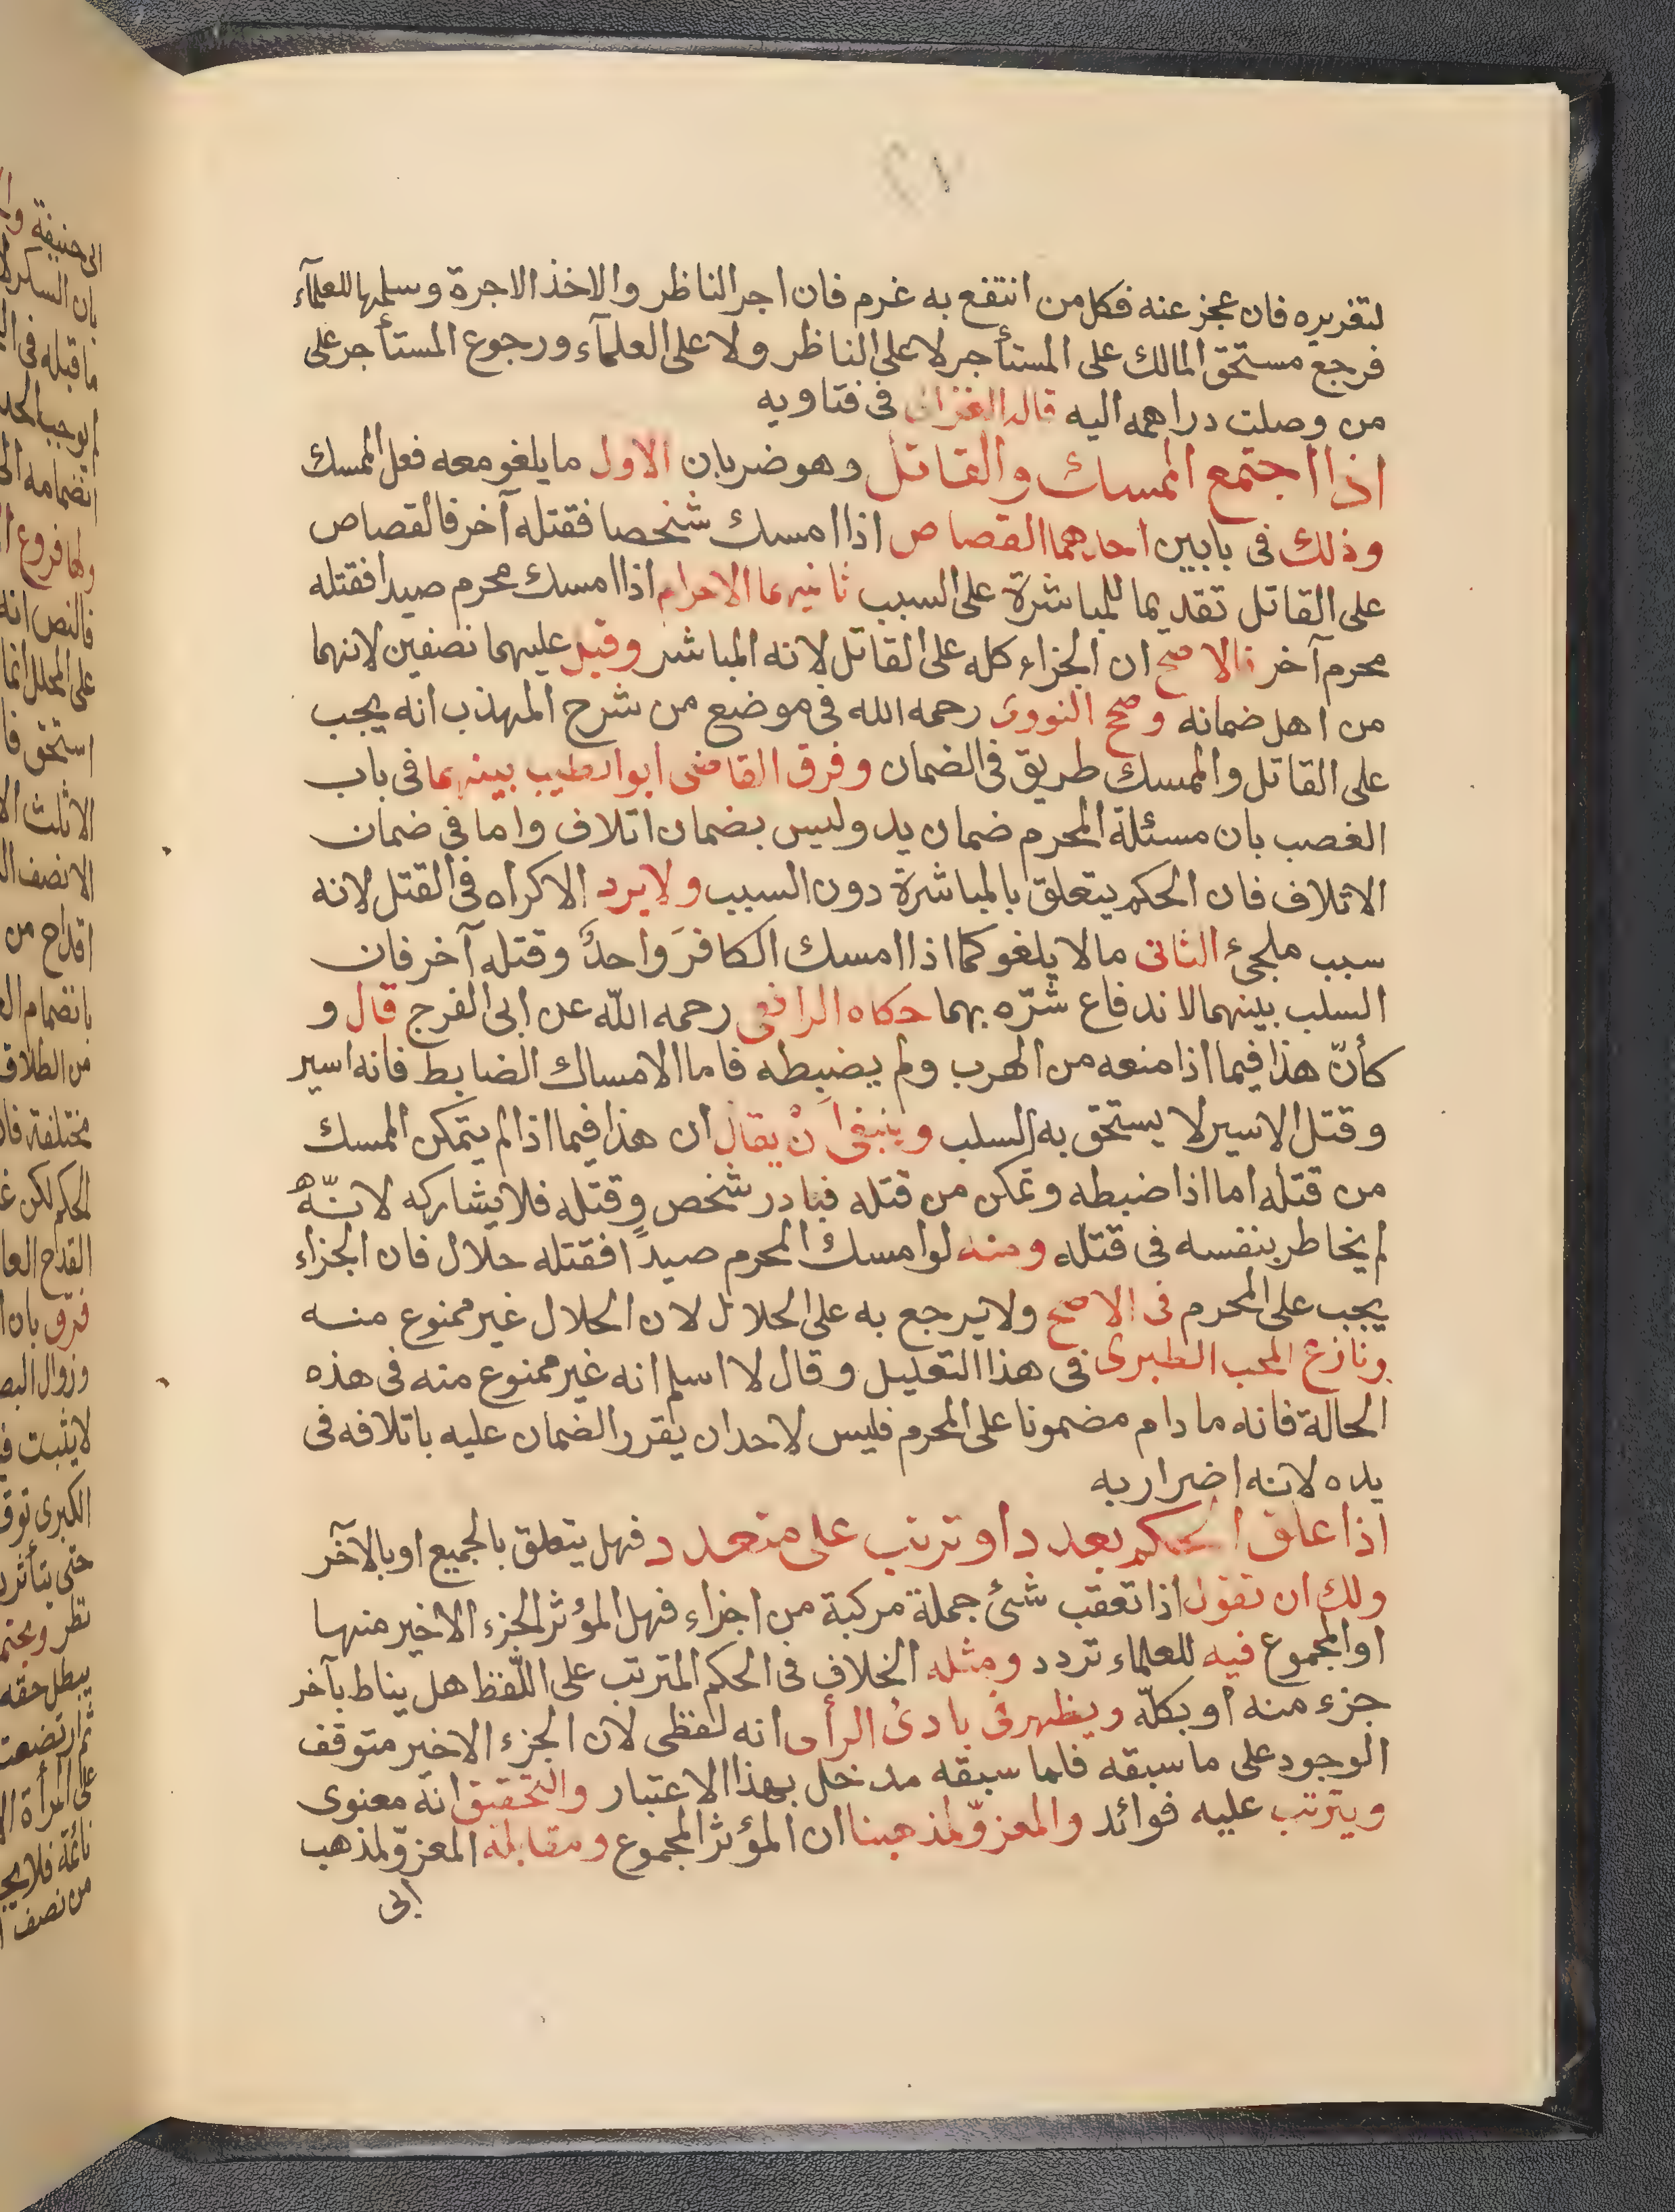 ٢١
لتغريره فان عجز عنه فكل من انتفع به غرم فان اجر الناظر والاخذ الاجرة وسلمها للعلمآء
فرجع مستحق المالك على المستأجر لا على الناظر ولا على العلمآء ورجوع المستأجر على
من وصلت دراهمه اليه قاله الغزالى فى فتاويه
اذا اجتمع الممسك والقاتل وهو ضربان الاول ما يلغو معه فعل الممسك
وذلك فى بابين احدهما القصاص اذا امسك شخصا فقتله آخر فالقصاص
على القاتل تقديما للمباشرة على السبب ثانيهما الاحرام اذا امسك محرم صيدا فقتله
محرم آخر فالاصح ان الجزاء كله على القاتل لانه المباشر وقيل عليهما نصفين لانهما
من اهل ضمانه وصحح النووى رحمه الله فى موضع من شرح المهذب انه يجب
على القاتل والممسك طريق فى الضمان وفرق القاضى ابو الطيب بينهما فى باب
الغصب بان مسئلة المحرم ضمان يد وليس بضمان اتلاف واما فى ضمان
الاتلاف فان الحكم يتعلق بالمباشرة دون السبب ولا يرد الاكراه فى القتل لانه
سبب ملجئ الثانى ما لا يلغو كما اذا امسك الكافرَ واحدٌ وقتله آخر فان
السلب بينهما لاندفاع شرّه بهما حكاه الرافعى رحمه اللّه عن ابى الفرج قال و
كأنّ هذا فيما اذا منعه من الهرب ولم يضبطه فاما الامساك الضابط فانه اسير
وقتل الاسير لا يستحق به السلب وينبغى انْ يقال ان هذا فيما اذا لم يتمكن الممسك
من قتله اما اذا ضبطه وتمكن من قتله فبادر شخص وقتله فلا يشاركه لانّه
لم يخاطر بنفسه فى قتله ومنه لو امسك المحرم صيدًا فقتله حلال فان الجزاء
يجب على المحرم فى الاصح ولا يرجع به على الحلال لان الحلال غير ممنوع منه
ونازع المحب الطبرى فى هذا التعليل وقال لا اسلم انه غير ممنوع منه فى هذه
الحالة فانه ما دام مضمونا على المحرم فليس لاحد ان يقرر الضمان عليه باتلافه فى
يده لانه اضرار به
اذا علق الحكم بعدد او ترتب على متعدد فهل يتعلق بالجميع او بالآخر
ولك ان تقول اذا تعقب شئ جملة مركبة من اجزاء فهل المؤثر الجزء الاخير منها
او المجموع فيه للعلماء تردد ومثله الخلاف فى الحكم المترتب على اللّفظ هل يناط بآخر
جزء منه او بكلّه ويظهر فى بادئ الرأى انه لفظى لان الجزء الاخير متوقف
الوجود على ما سبقه فلما سبقه مدخل بهذا الاعتبار والتحقيق انه معنوى
ويترتب عليه فوائد والمعزوّ لمذهبنا ان المؤثر المجموع ومقابله المعزوّ لمذهب
ابى